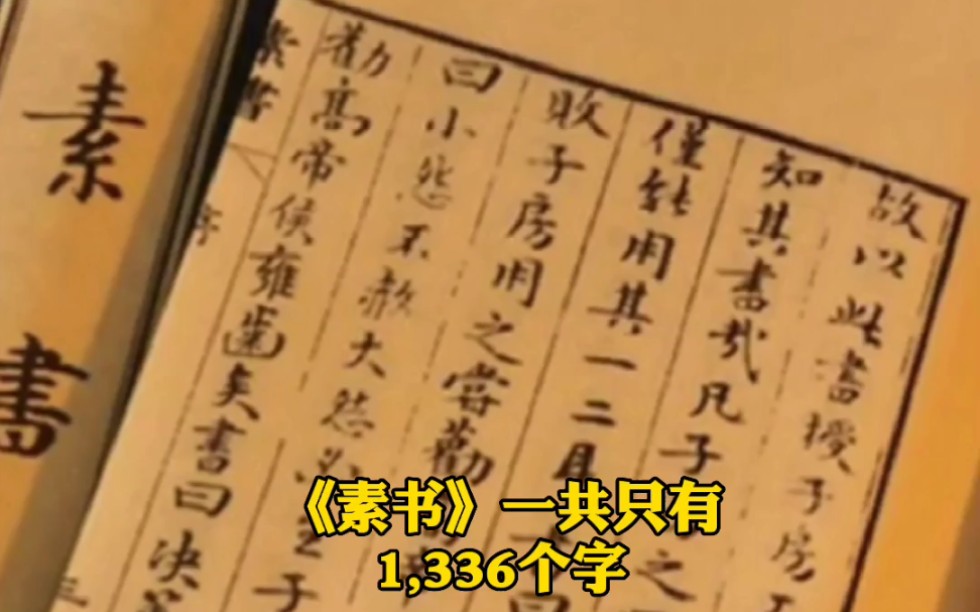 素書
故以此書授子房
知其書哉凡子
僅能用其一二耳
敗子房用之嘗勸
曰小怨不赦大怨必生子
勸高帝侯雍齒矣書曰決
素書
序
《素书》一共只有
1,336个字